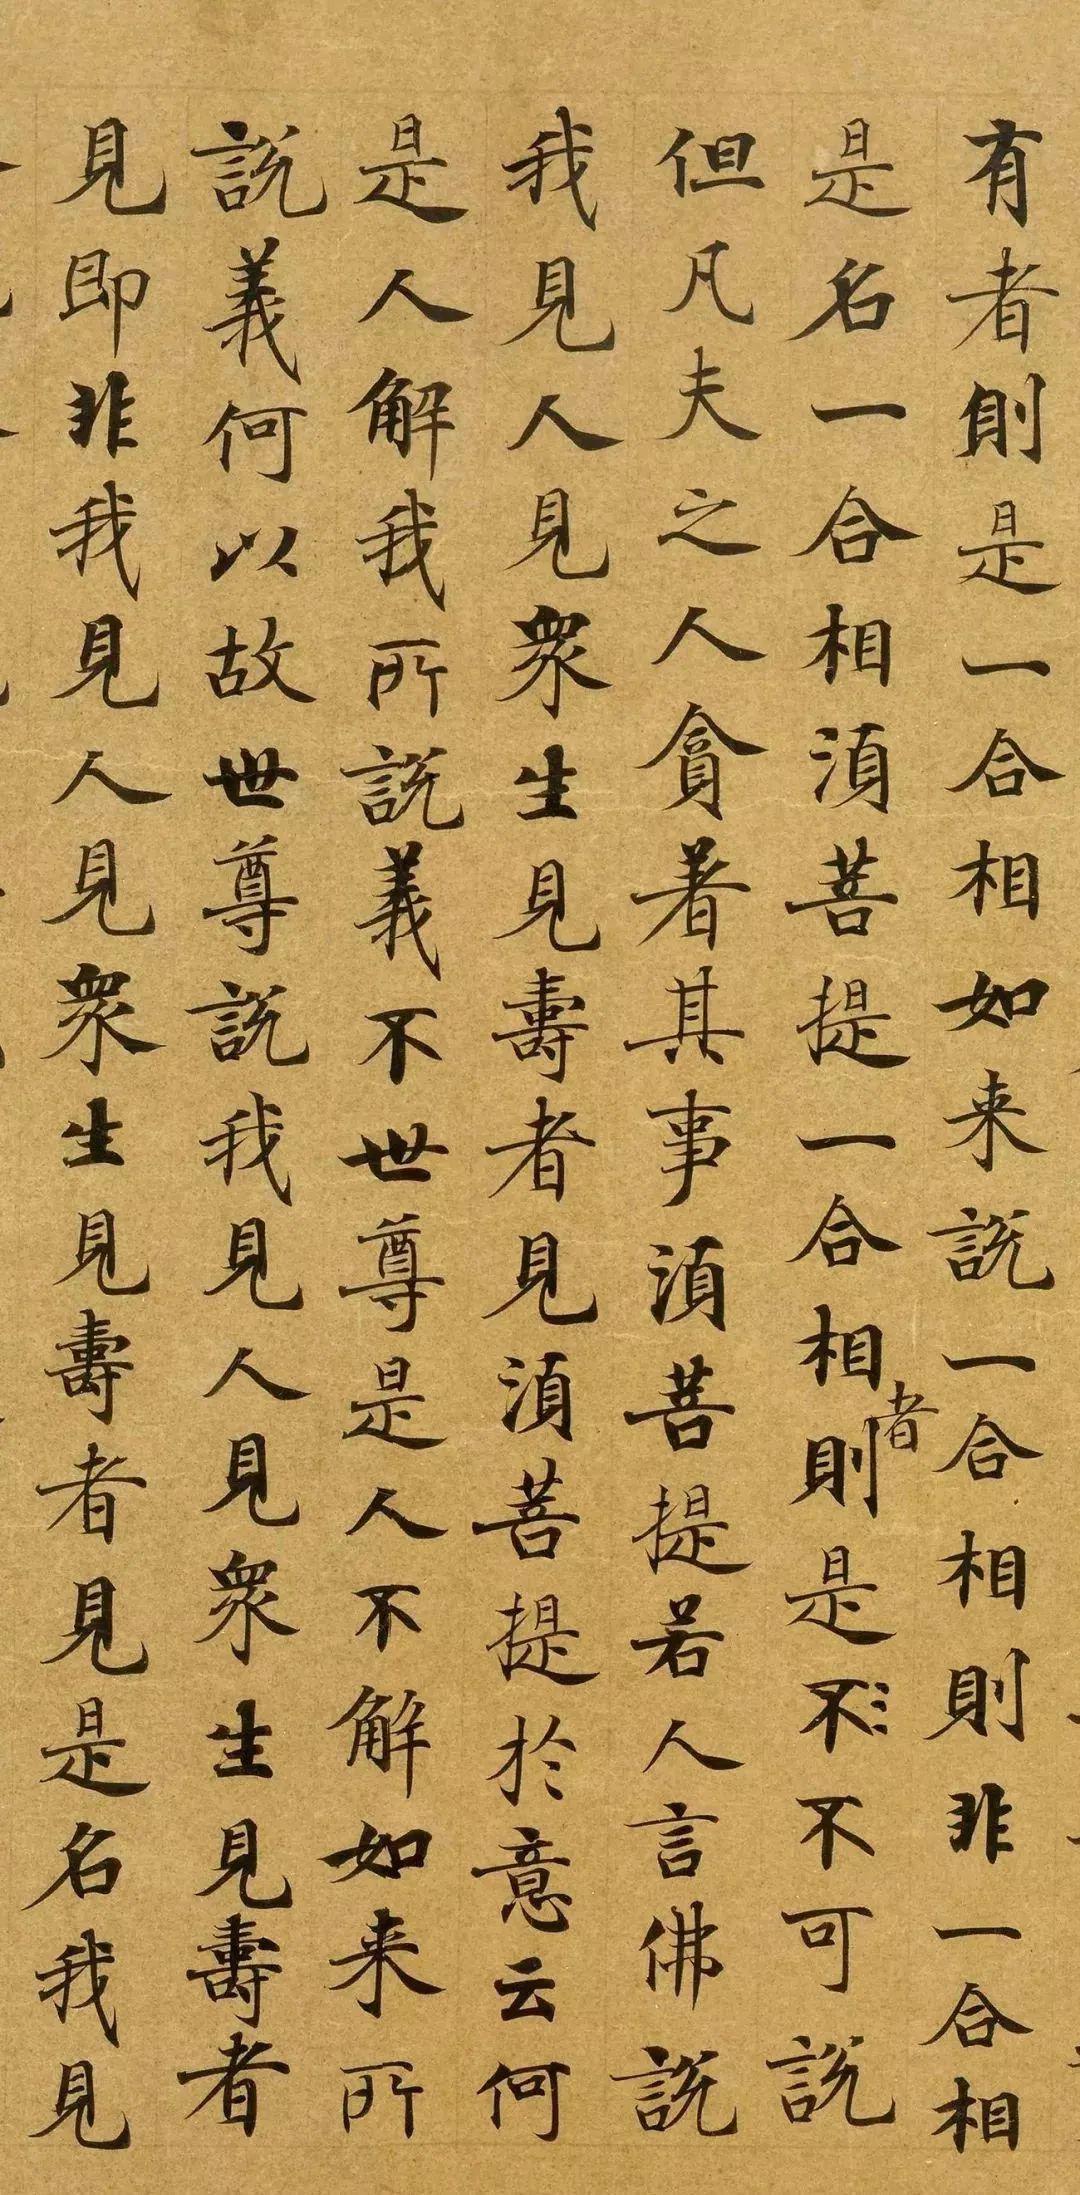 有者則是一合相如来説一合相則非一合相
是名一合相須菩提一合相者則是不不可説
但凡夫之人貪著其事須菩提若人言佛説
我見人見衆生見壽者見須菩提於意云何
是人解我所説義不世尊是人不解如来所
説義何以故世尊説我見人見衆生見壽者
見即非我見人見衆生見壽者見是名我見